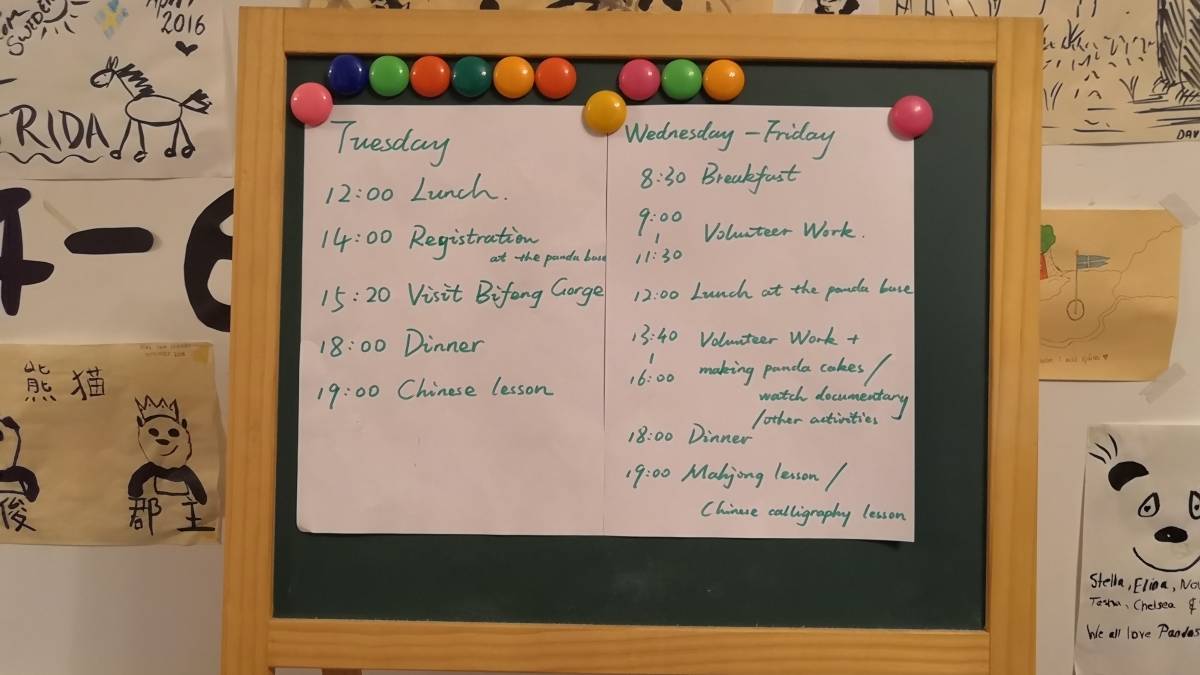 SWEDEN
April
2016
RIDA
DAV
4-6
熊猫
俊
郡主
Tuesday
12:00 Lunch.
14:00 Registration
at the panda base
15:20 Visit Bifeng Gorge
18:00 Dinner
19:00 Chinese lesson
Wednesday - Friday
8:30 Breakfast
9:00
|
11:30
Volunteer Work.
12:00 Lunch at the panda base
13:40
|
16:00
Volunteer Work +
making panda cakes /
watch documentary
/other activities
18:00 Dinner
19:00 Mahjong lesson /
Chinese calligraphy lesson
Stella, Elina,
Tasha, Chelsea &
We all love Pandas